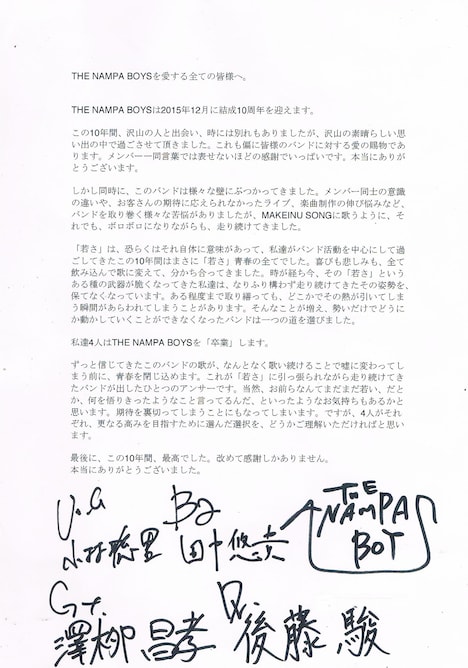 THE NAMPA BOYSを愛する全ての皆様へ。
THE NAMPA BOYSは2015年12月に結成10周年を迎えます。
この10年間、沢山の人と出会い、時には別れもありましたが、沢山の素晴らしい思
い出の中で過ごさせて頂きました。これも偏に皆様のバンドに対する愛の賜物であ
ります。メンバー一同言葉では表せないほどの感謝でいっぱいです。本当にありが
とうございます。
しかし同時に、このバンドは様々な壁にぶつかってきました。メンバー同士の意識
の違いや、お客さんの期待に応えられなかったライブ、楽曲制作の伸び悩みなど、
バンドを取り巻く様々な苦悩がありましたが、MAKEINU SONGに歌うように、そ
れでも、ボロボロになりながらも、走り続けてきました。
「若さ」は、恐らくはそれ自体に意味があって、私達がバンド活動を中心にして過
ごしてきたこの10年間はまさに「若さ」青春の全てでした。喜びも悲しみも、全て
飲み込んで歌に変えて、分かち合ってきました。時が経ち今、その「若さ」という
ある種の武器が脆くなってきた私達は、なりふり構わず走り続けてきたその姿勢を、
保てなくなっています。ある程度まで取り繕っても、どこかでその熱が引いてしま
う瞬間があらわれてしまうことがあります。そんなことが増え、勢いだけでどうに
か動かしていくことができなくなったバンドは一つの道を選びました。
私達4人はTHE NAMPA BOYSを「卒業」します。
ずっと信じてきたこのバンドの歌が、なんとなく歌い続けることで嘘に変わってし
まう前に、青春を閉じ込めます。これが「若さ」に引っ張られながら走り続けてき
たバンドが出したひとつのアンサーです。当然、お前らなんてまだまだ若い、だと
か、何を悟りきったようなこと言ってるんだ、といったようなお気持ちもあるかと
思います。期待を裏切ってしまうことにもなってしまいます。ですが、4人がそれ
ぞれ、更なる高みを目指すために選んだ選択を、どうかご理解いただければと思い
ます。
最後に、この10年間、最高でした。改めて感謝しかありません。
本当にありがとうございました。
Vo.G
小林聡里
Ba
田中悠貴
THE
NAMPA
BOY
Gt.
澤柳昌孝
Dr.
後藤駿